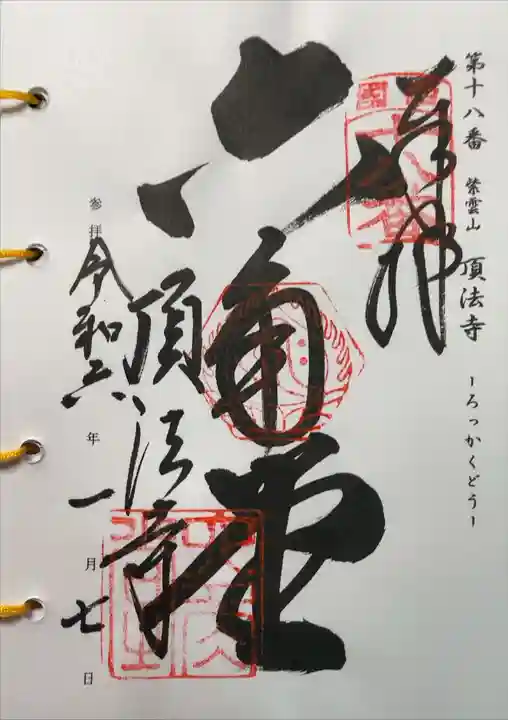 第十八番 紫雲山 頂法寺 -ろっかくどう-
奉拝
六角堂
頂法寺
参拝 令和六年一月七日